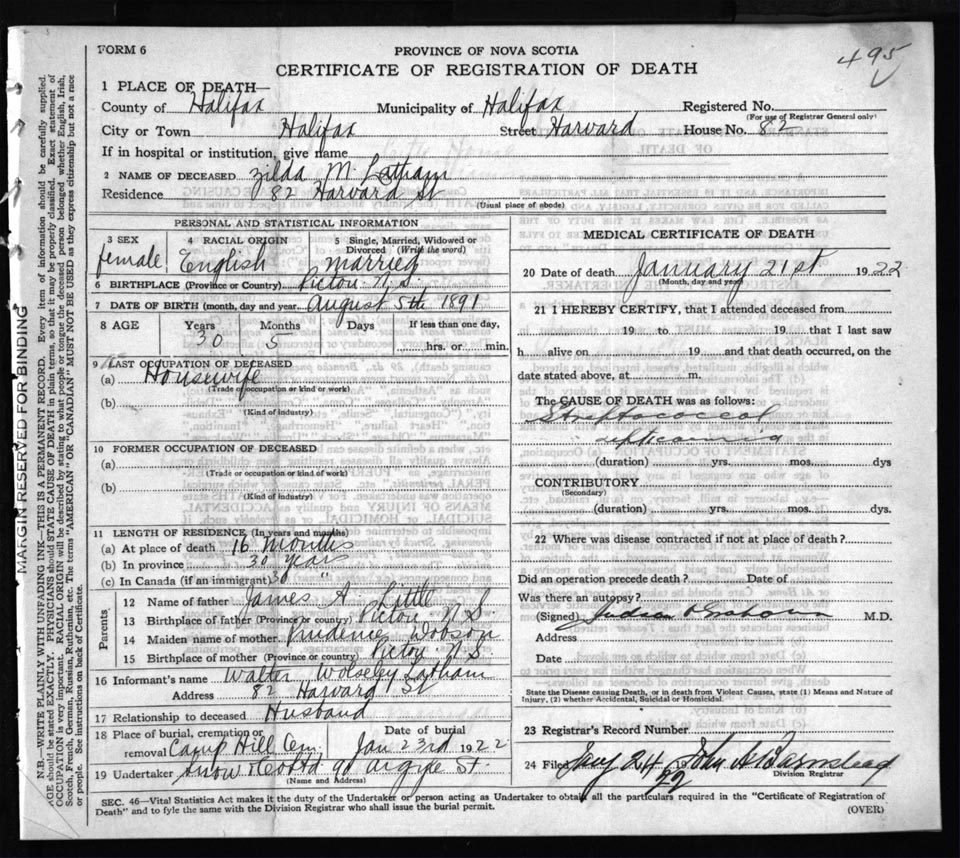 FORM 6
495
PROVINCE OF NOVA SCOTIA
CERTIFICATE OF REGISTRATION OF DEATH
1 PLACE OF DEATH—
County of Halifax Municipality of Halifax Registered No.
(For use of Registrar General only)
City or Town Halifax Street Harvard House No. 82
If in hospital or institution, give name
2 NAME OF DECEASED Zilda M. Latham
Residence 82 Harvard St
(Usual place of abode)
PERSONAL AND STATISTICAL INFORMATION
3 SEX female
4 RACIAL ORIGIN English
5 Single, Married, Widowed or Divorced (Write the word) married
6 BIRTHPLACE (Province or Country) Pictou N.S.
7 DATE OF BIRTH (month, day and year) August 5th 1891
8 AGE Years Months Days If less than one day,
30 5 hrs. or min.
9 LAST OCCUPATION OF DECEASED
(a) Housewife
(Trade or occupation or kind of work)
(b)
(Kind of industry)
10 FORMER OCCUPATION OF DECEASED
(a)
(Trade or occupation or kind of work)
(b)
(Kind of industry)
11 LENGTH OF RESIDENCE (In years and months)
(a) At place of death 16 Months
(b) In province 30 Years
(c) In Canada (if an immigrant) 30 "
Parents
12 Name of father James A. Little
13 Birthplace of father (Province or country) Pictou N.S.
14 Maiden name of mother Prudence Dobson
15 Birthplace of mother (Province or country) Pictou N.S.
16 Informant's name Walter Wolseley Latham
Address 82 Harvard St
17 Relationship to deceased Husband
18 Place of burial, cremation or removal Camp Hill Cem. Date of burial Jan 23rd 1922
19 Undertaker Snow & Co Ltd 90 Argyle St.
(Name and Address)
MEDICAL CERTIFICATE OF DEATH
20 Date of death January 21st 1922
(Month, day and year)
21 I HEREBY CERTIFY, that I attended deceased from
19 to 19 that I last saw
h alive on 19 and that death occurred, on the
date stated above, at m.
The CAUSE OF DEATH was as follows:
Streptococcal
septicaemia
(duration) yrs. mos. dys
CONTRIBUTORY
(Secondary)
(duration) yrs. mos. dys.
22 Where was disease contracted if not at place of death?
Did an operation precede death? Date of
Was there an autopsy?
(Signed) M.D.
Address
Date
State the Disease causing Death, or in death from Violent Causes, state (1) Means and Nature of Injury, (2) whether Accidental, Suicidal or Homicidal.
23 Registrar's Record Number
24 Filed Jany 24 1922 John A Barnstead
Division Registrar
SEC. 46—Vital Statistics Act makes it the duty of the Undertaker or person acting as Undertaker to obtain all the particulars required in the "Certificate of Registration of
Death" and to fyle the same with the Division Registrar who shall issue the burial permit.
(OVER)
MARGIN RESERVED FOR BINDING
N.B.—WRITE PLAINLY WITH UNFADING INK—THIS IS A PERMANENT RECORD. Every item of information should be carefully supplied.
AGE should be stated EXACTLY. PHYSICIANS should STATE CAUSE OF DEATH in plain terms, so that it may be properly classified. Exact statement of
OCCUPATION is very important. RACIAL ORIGIN will be described by stating to what people or tongue the deceased person belonged whether English, Irish,
Scotch, French, German, Russian, Ruthenian, etc. The terms "AMERICAN" OR "CANADIAN" MUST NOT BE USED as they express citizenship but not a race
or people. See instructions on back of Certificate.